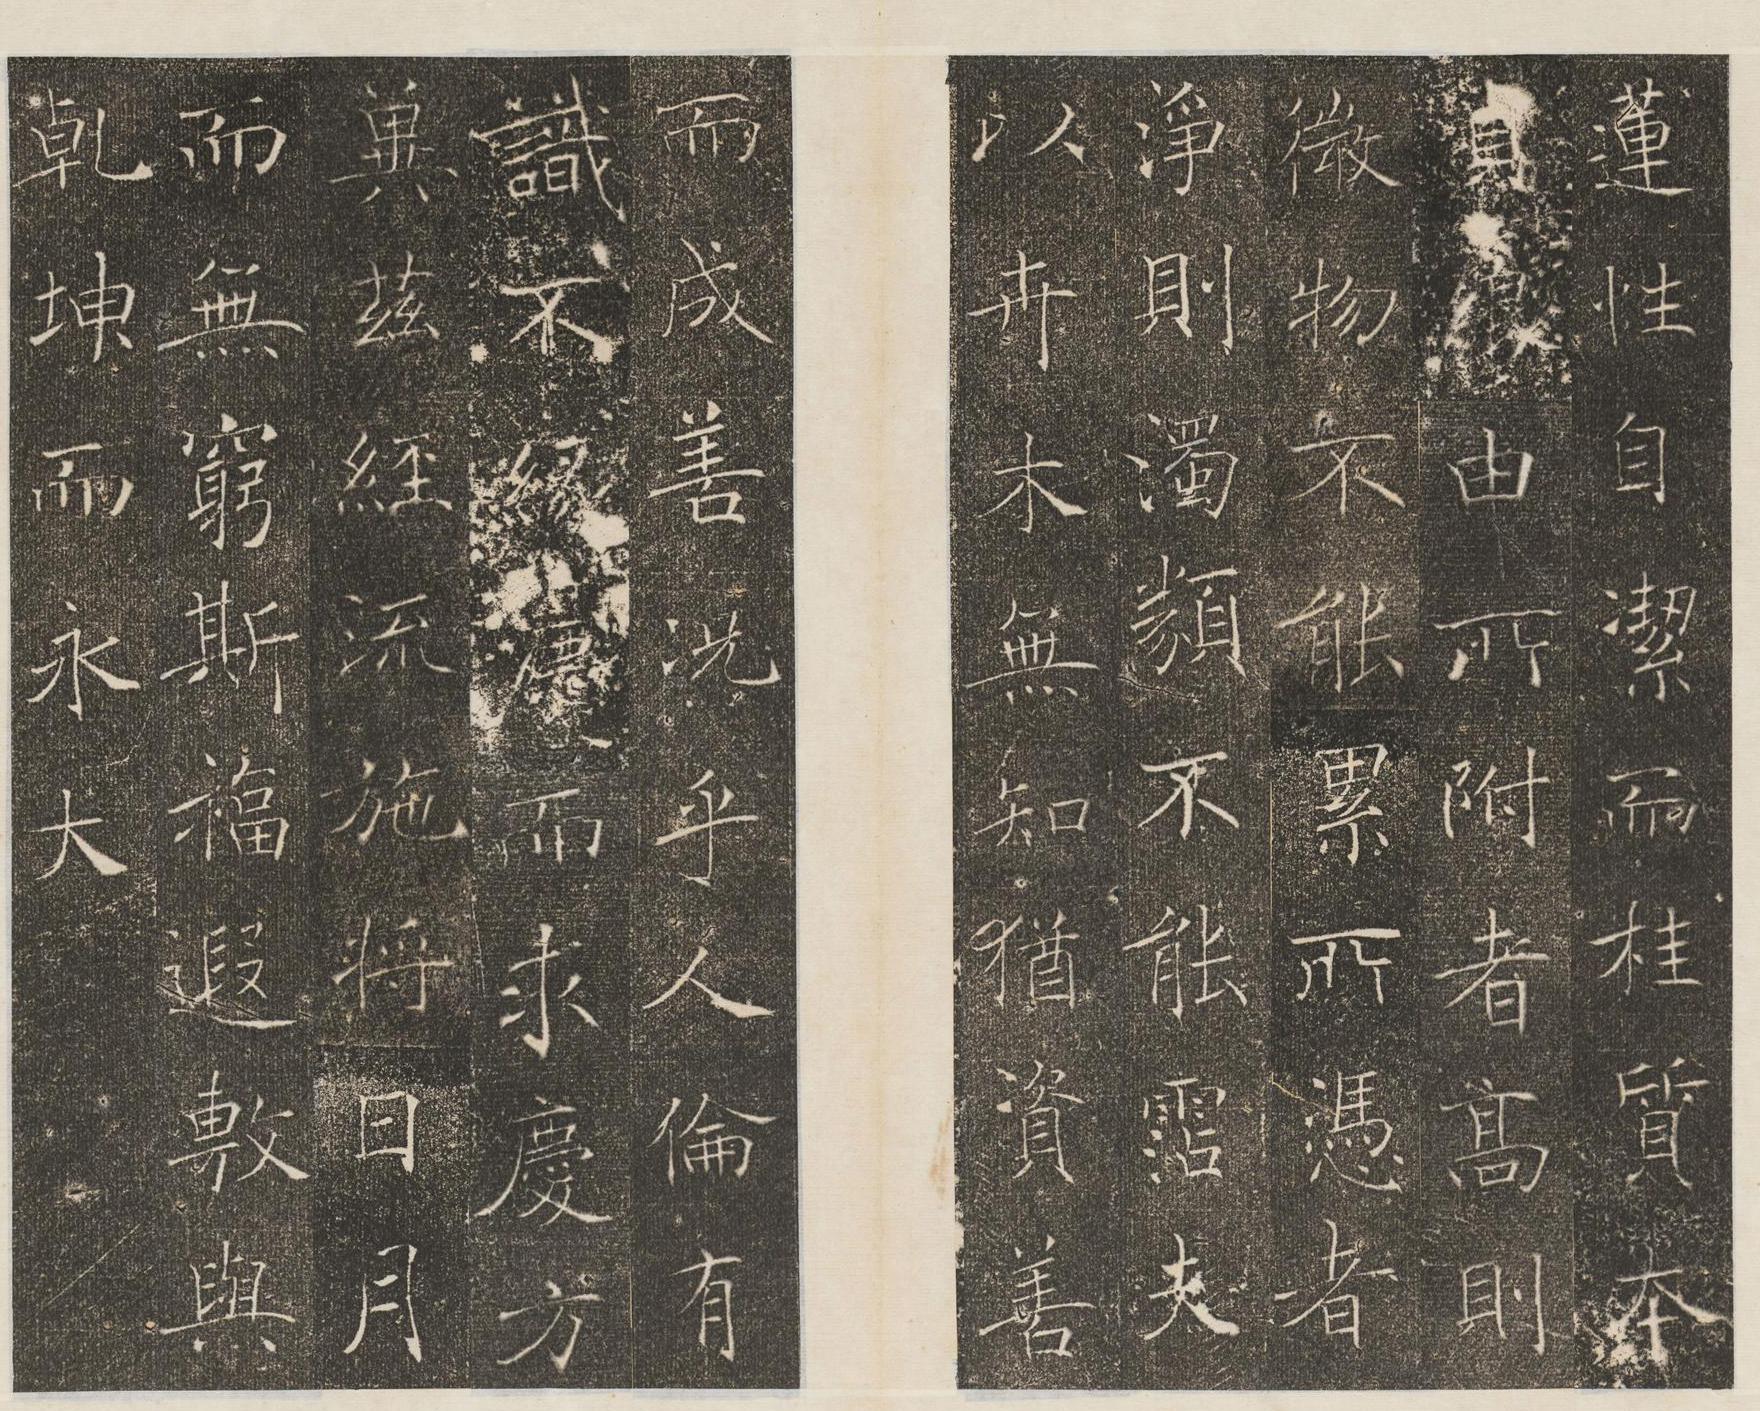 蓮性自潔而桂質本
貞良由所附者高則
微物不能累所憑者
淨則濁類不能霑夫
以卉木無知猶資善
而成善況乎人倫有
識不緣慶而求慶方
冀茲經流施將日月
而無窮斯福遐敷與
乾坤而永大